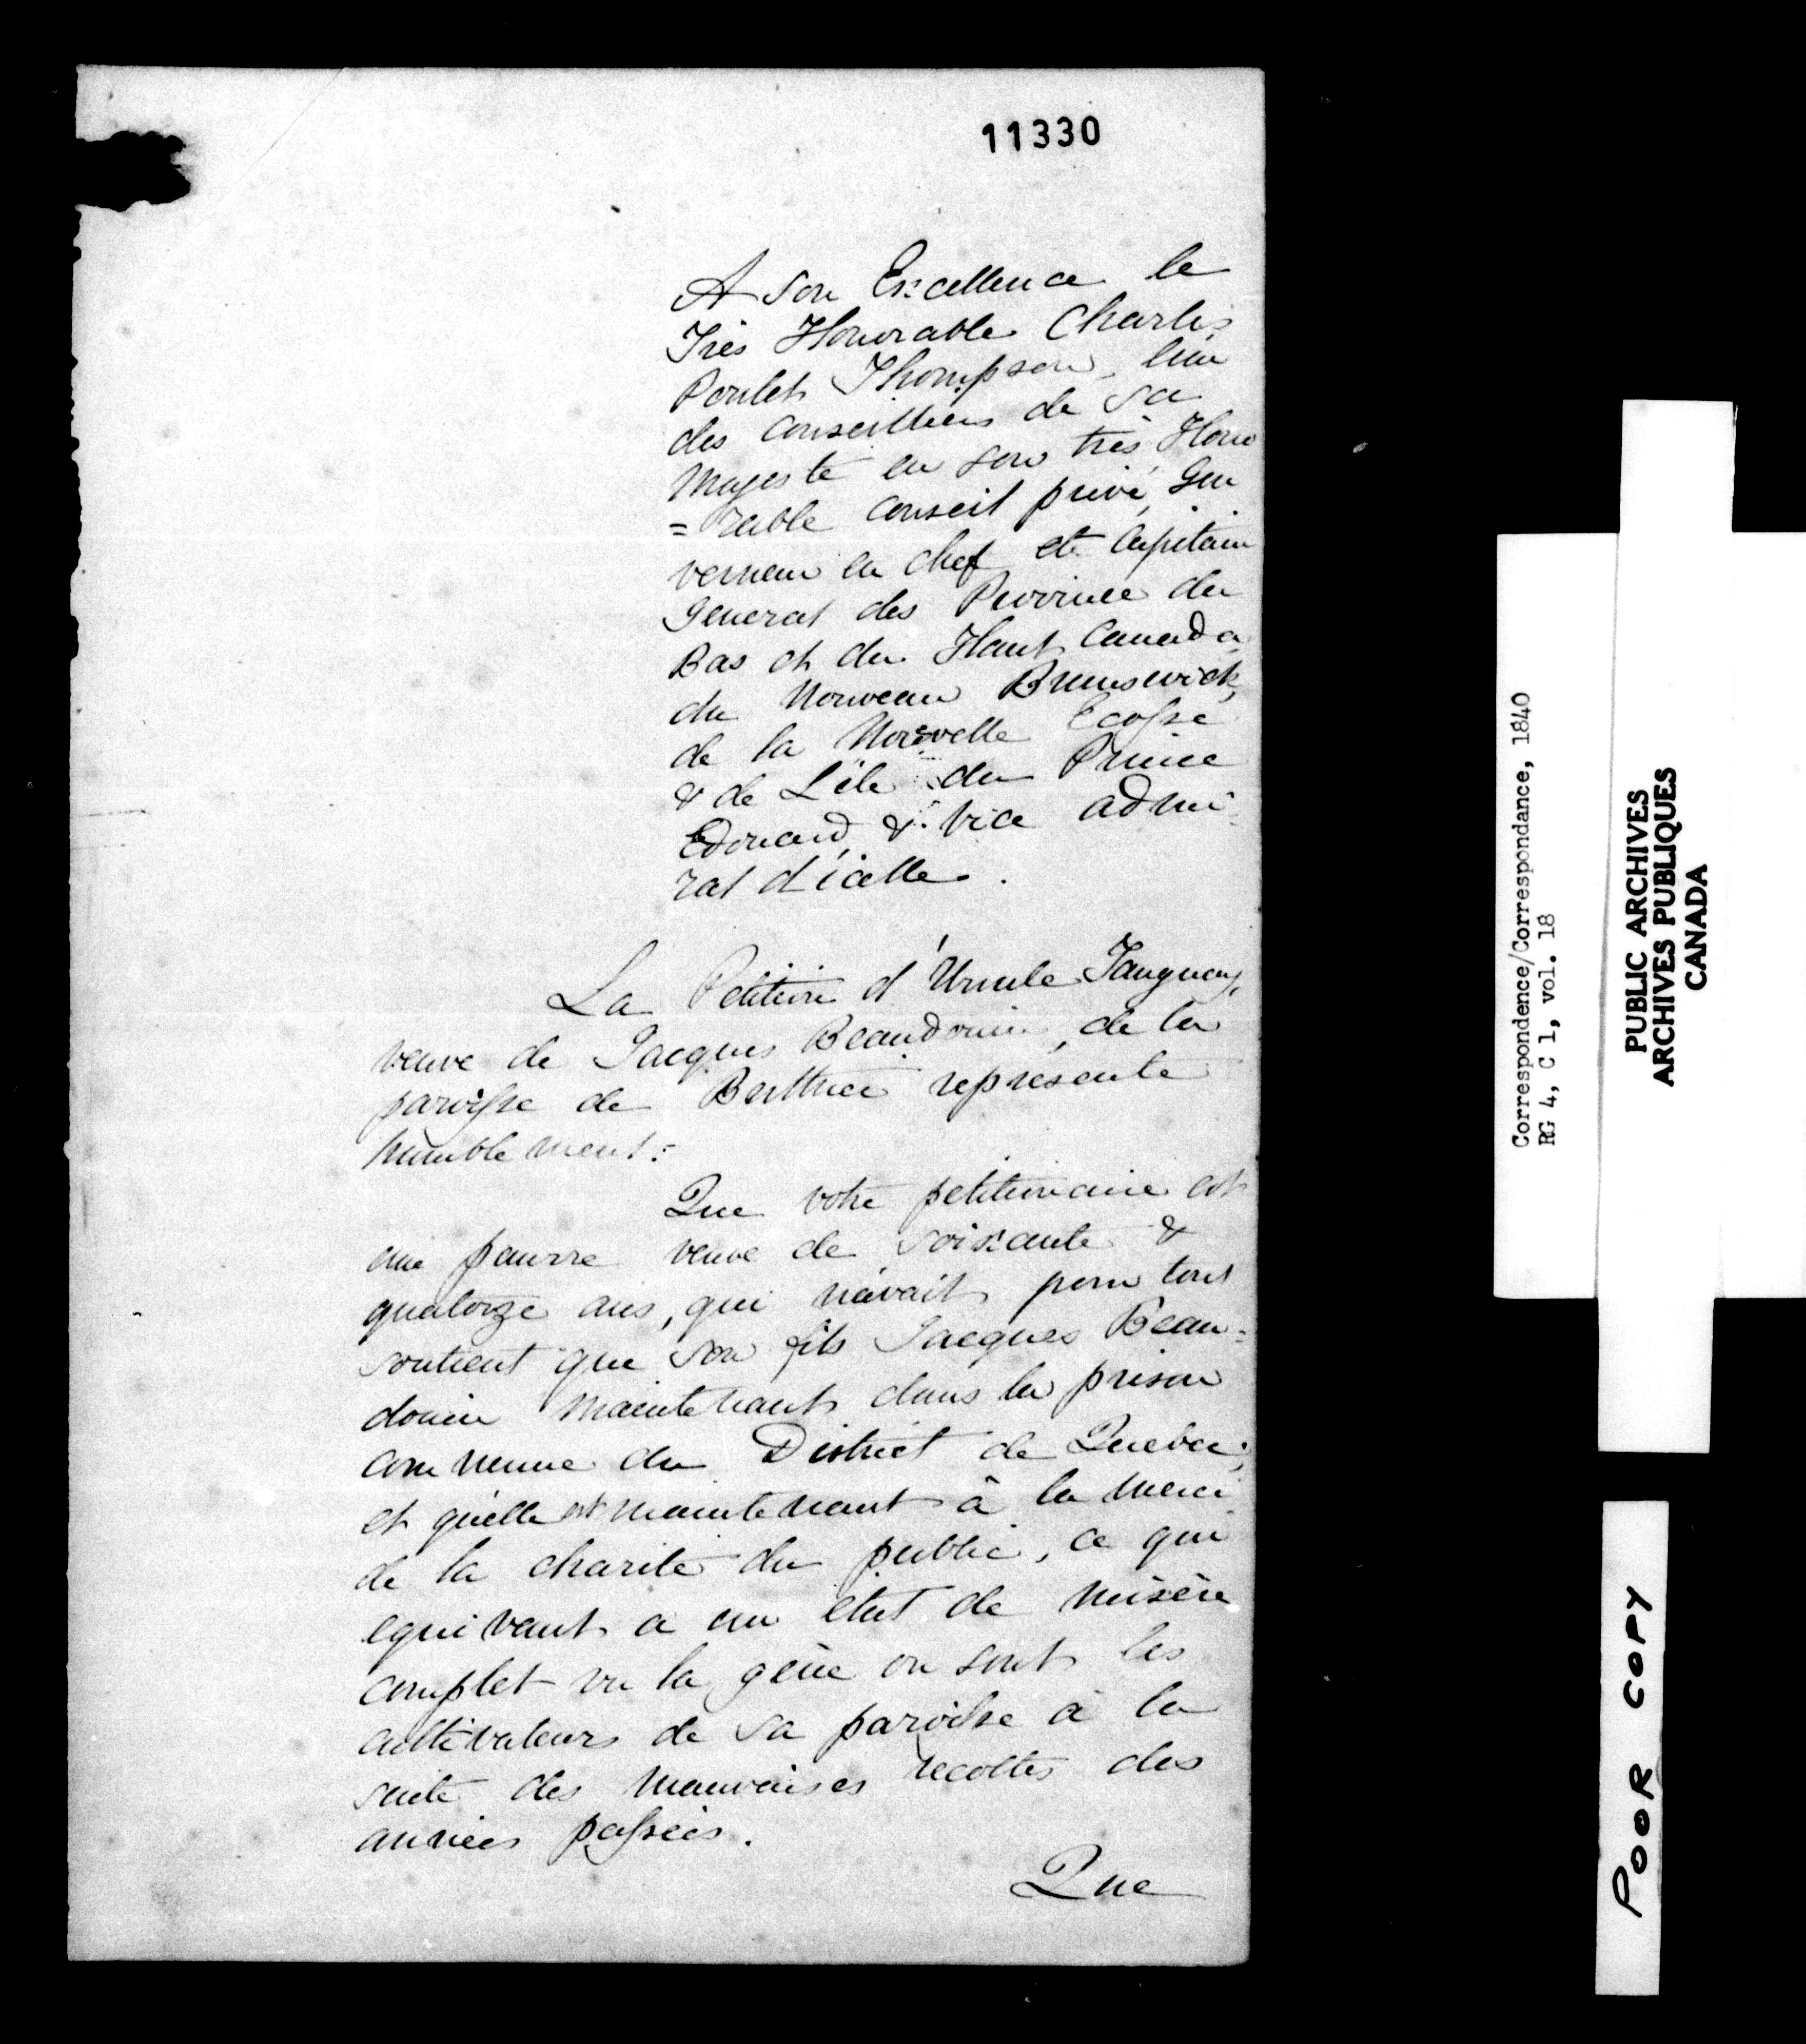 11330
A Son Excellence le
Très Honorable Charles
Poulet Thompson, l'un
des Conseillers de Sa
Majesté en son très Hono
=rable Conseil privé, Gou
verneur en chef et Capitain
Général des Province du
Bas et du Haut Canada,
du Nouveau Brunswick,
de la Nouvelle Ecosse
& de L'ile du Prince
Edouard, & Vice admi
ral d'icelle.
La Petition d'Ursule Tanguay,
veuve de Jacques Beaudouin, de la
paroisse de Berthier représente
humblement:
Que votre petitionaire est
une pauvre veuve de soixante &
quatorze ans, qui n'avait pour tout
soutient que son fils Jacques Beau=
douin maintenant dans la prison
commune du District de Quebec;
et qu'elle est maintenant à la merci
de la charité du public, ce qui
equivaut a un état de misère
complet vu la gêne ou sont les
cultivateurs de sa paroisse à la
suite des mauvaises recoltes des
années passées.
Que
Correspondence/Correspondance, 1840
RG 4, C 1, vol. 18
PUBLIC ARCHIVES
ARCHIVES PUBLIQUES
CANADA
POOR COPY